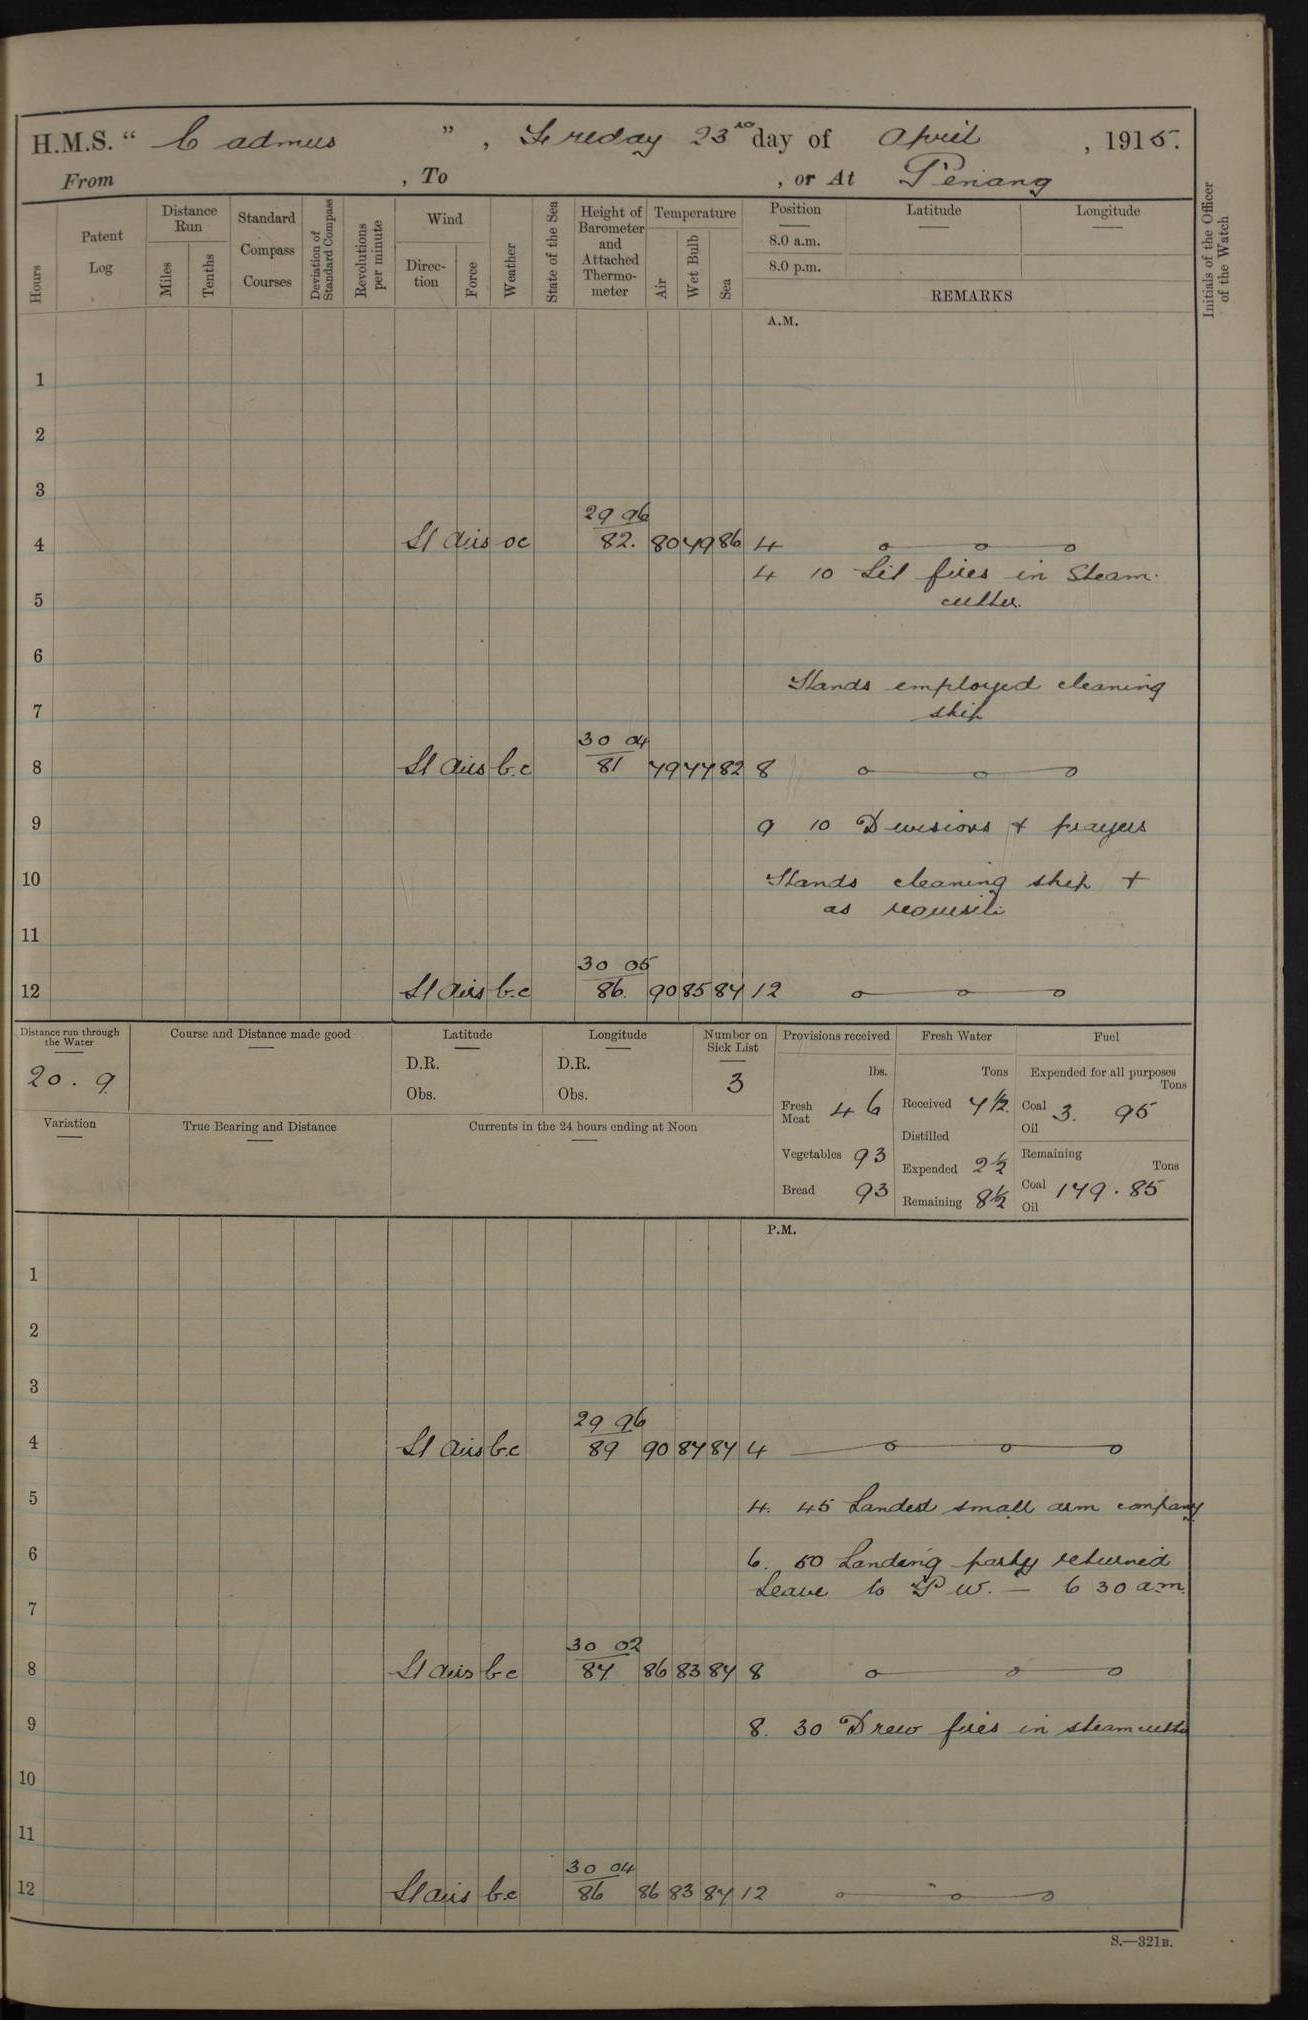 H.M.S. “ Cadmus ”, Friday 23rd day of April, 1915.
From , To , or At Penang
Hours
Patent Log
Distance Run
Miles
Tenths
Standard Compass Courses
Deviation of Standard Compass
Revolutions per minute
Wind
Direction
Force
Weather
State of the Sea
Height of Barometer and Attached Thermometer
Temperature
Air
Wet Bulb
Sea
Position
8.0 a.m.
8.0 p.m.
Latitude
Longitude
REMARKS
Initials of the Officer of the Watch
A.M.
1
2
3
29 96
4 Lt airs oc 82. 80 79 86 4
4 10 Lit fires in Steam
5 cutter.
6
Hands employed cleaning
7 ship
30 04
8 Lt airs b.c 81 79 77 82 8
9 9 10 Divisions + prayers
10 Hands cleaning ship +
as requisite
11
30 05
12 Lt airs b.c 86. 90 85 84 12
Distance run through the Water
20 . 9
Course and Distance made good
Latitude
D.R.
Obs.
Longitude
D.R.
Obs.
Number on Sick List
3
Provisions received
lbs.
Fresh Meat 46
Vegetables 93
Bread 93
Fresh Water
Tons
Received 7½
Distilled
Expended 2½
Remaining 8½
Fuel
Expended for all purposes
Tons
Coal 3. 95
Oil
Remaining
Tons
Coal 179.85
Oil
Variation
True Bearing and Distance
Currents in the 24 hours ending at Noon
P.M.
1
2
3
29 96
4 Lt airs b.c 89 90 87 84 4
5 4. 45 Landed small arm company
6 6. 50 Landing party returned
Leave to P W. — 6 30 a.m.
7
30 02
8 Lt airs b.c 87 86 83 84 8
9 8. 30 Drew fires in steam cutter
10
11
30 04
12 Lt airs b.c 86 86 83 84 12
S.—321B.